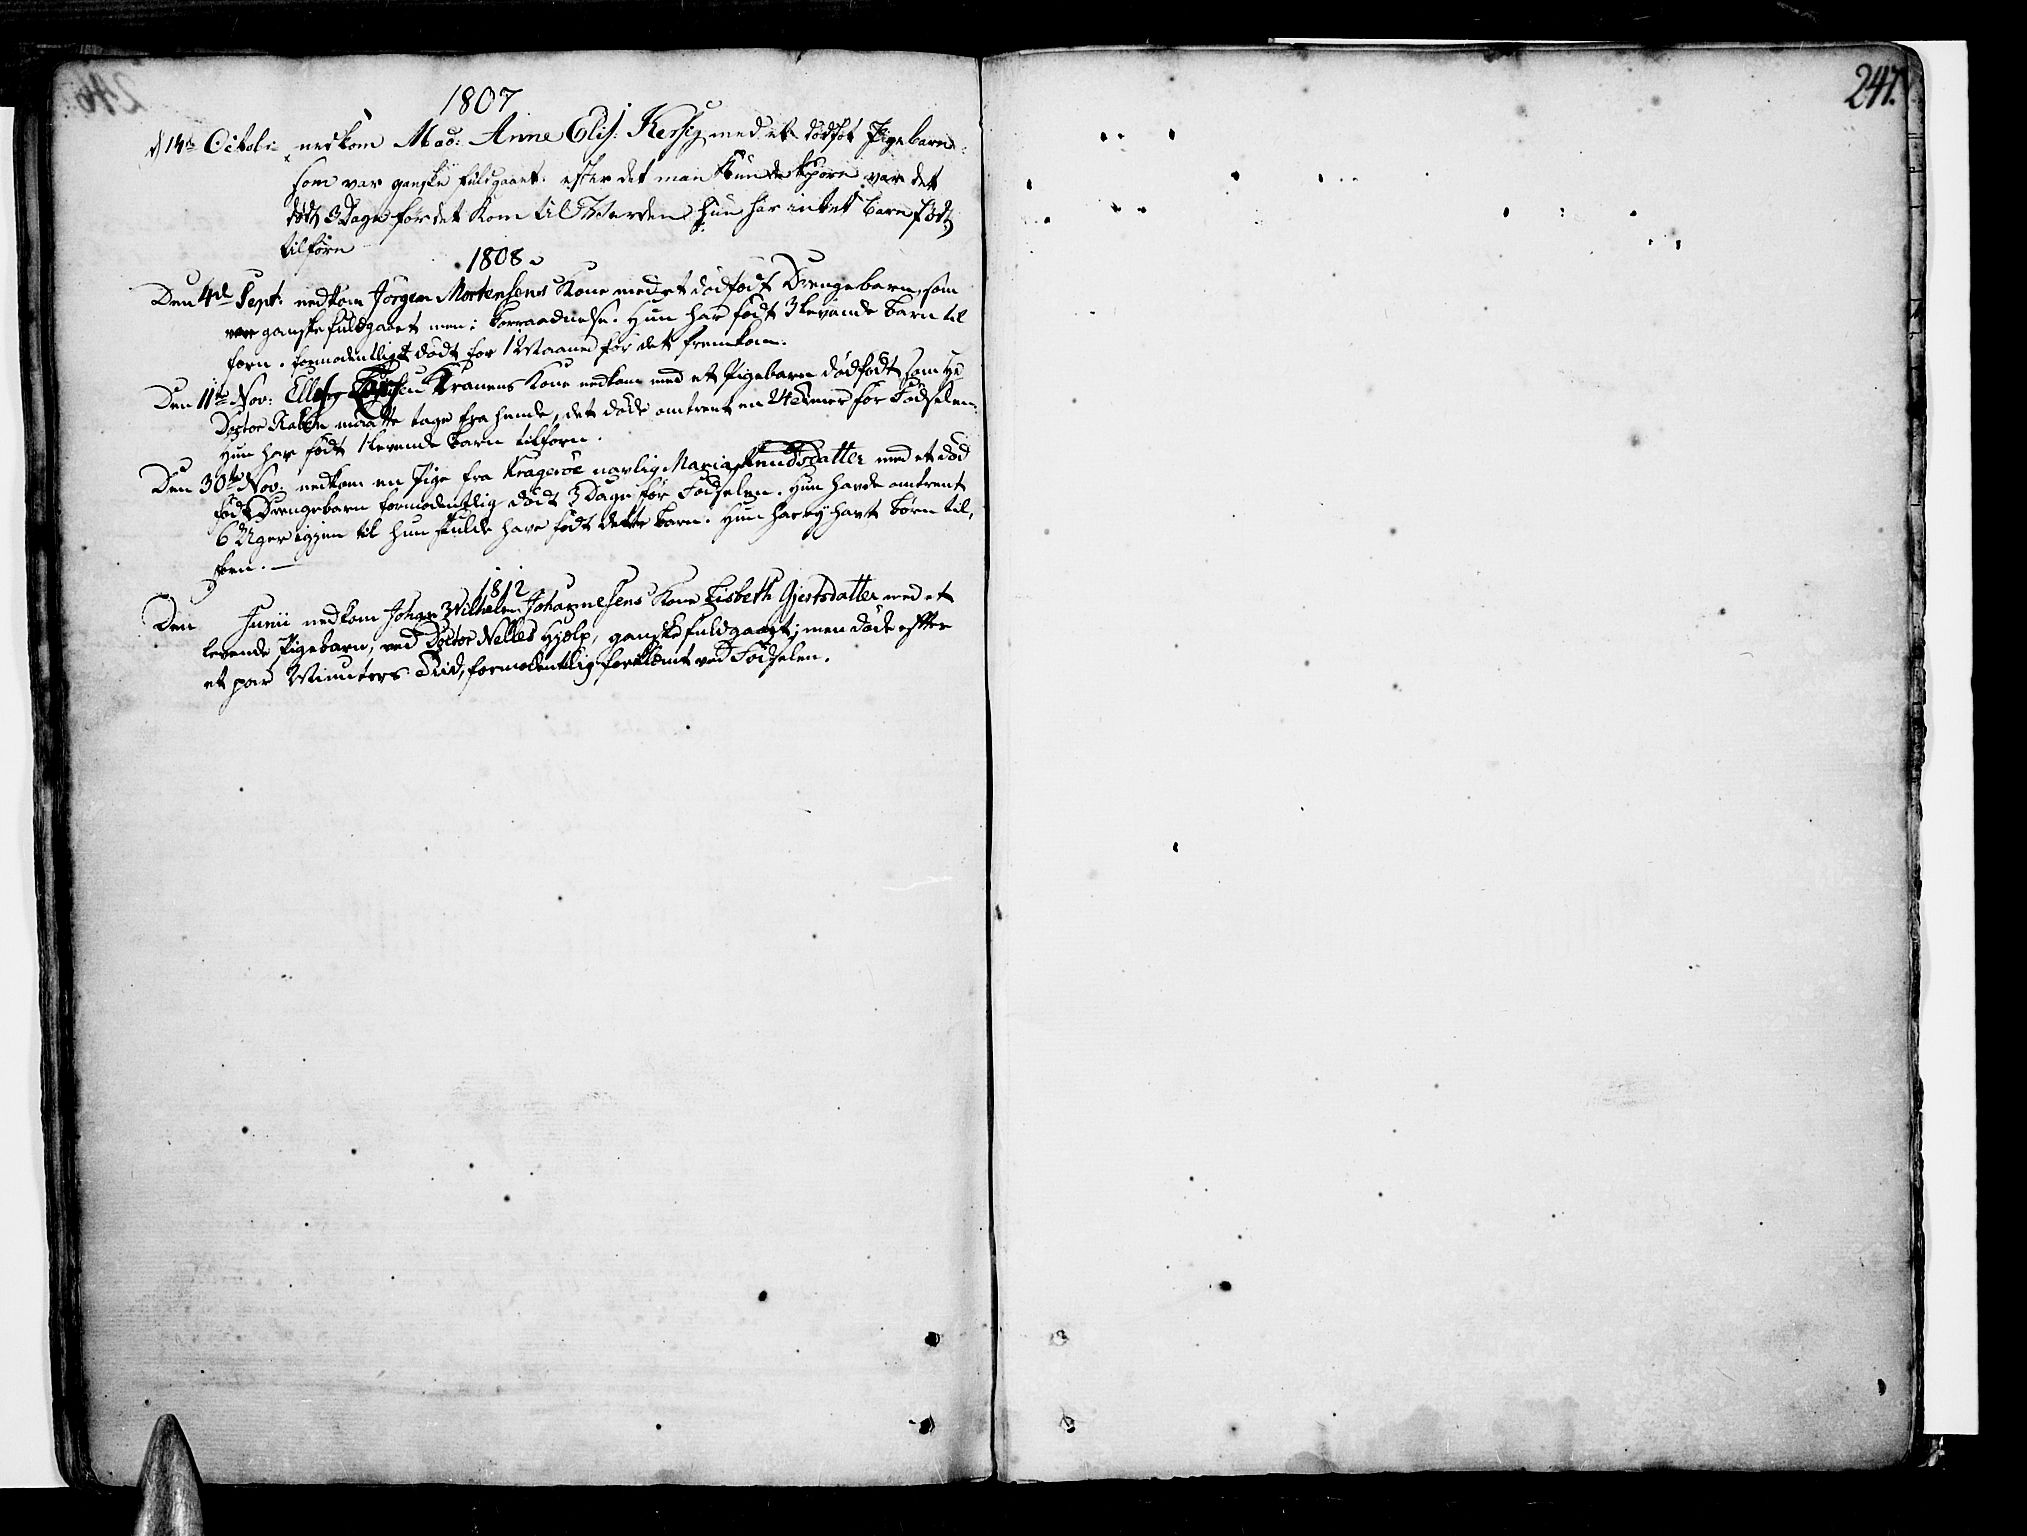 247.
1807
d 14de Octobr: nedkom Mad: Anne Elis. med et dødføt Pigebarn
som var ganske fuldgaaet. efter det man kunde spøre var det
dødt 3 Dage før det kom til Verden hun har intet barn født
tilførn
1808
Den 4de Sept: nedkom Jørgen Mortensens Kone med et dødfødt Drengebarn, som
var ganske fuldgaaet men i Forraadnelse. Hun har født 3 levende Barn til
forn. formodentligt dødt for 1 Maaned før det fremkom.
Den 11te Nov: Kranens Kone nedkom med et Pigebarn dødfødt som Hr
Doctor maatte tage fra hende, det døde omtrent en 24 Timer før Fødselen.
Hun har født 1 levende Barn tilforn.
Den 30te Nov. nedkom en Pige fra Kragerøe navnlig Maria Knudsdatter med et død
født Drengebarn formodentlig dødt 3 Dage før Fødselen. Hun havde omtrent
6 Uger igjen til hun skulde have født dette Barn. Hun har ey havt Børn til,
forn.
1812
Den Junii nedkom Johan Wilhelm Johannesens Kone Lisbeth Gjertsdatter med et
levende Pigebarn, ved Doctor Nelles Hjelp, ganske fuldgaaet; men døde efter
et par Minuters Tiid, formodentlig forklemt ved Fødselen.